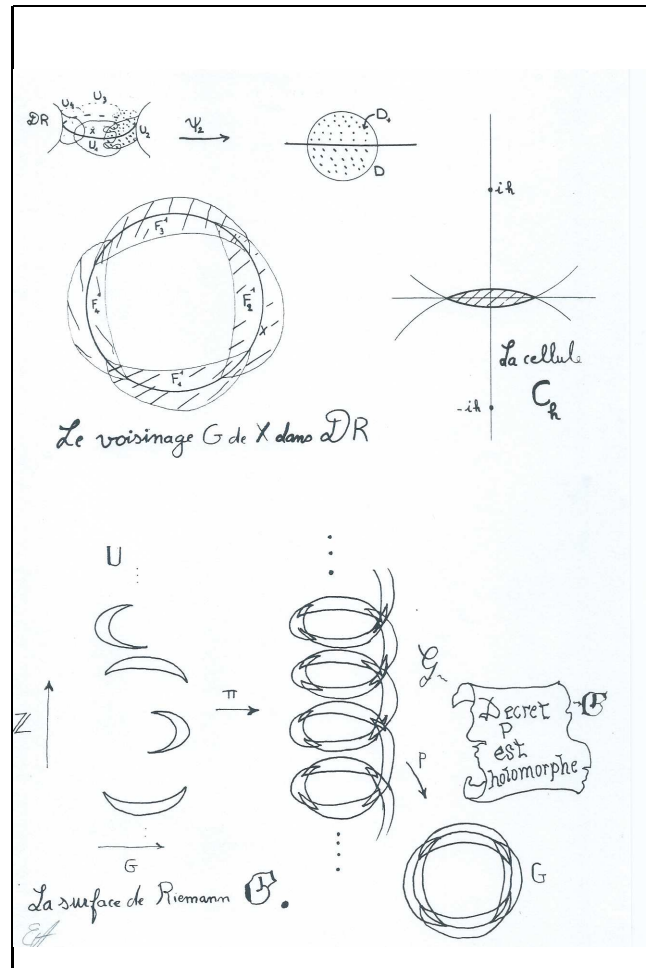 U₄ U₃
DR
x
U₁ U₂
Ψ₂
D₊
D
ih
-ih
F₃¹
F₄¹ F₂¹
X
F₁¹
La cellule
C_h
Le voisinage G de X dans DR
U
ℤ
π
G
P
Decret
P
est
holomorphe
G
La surface de Riemann